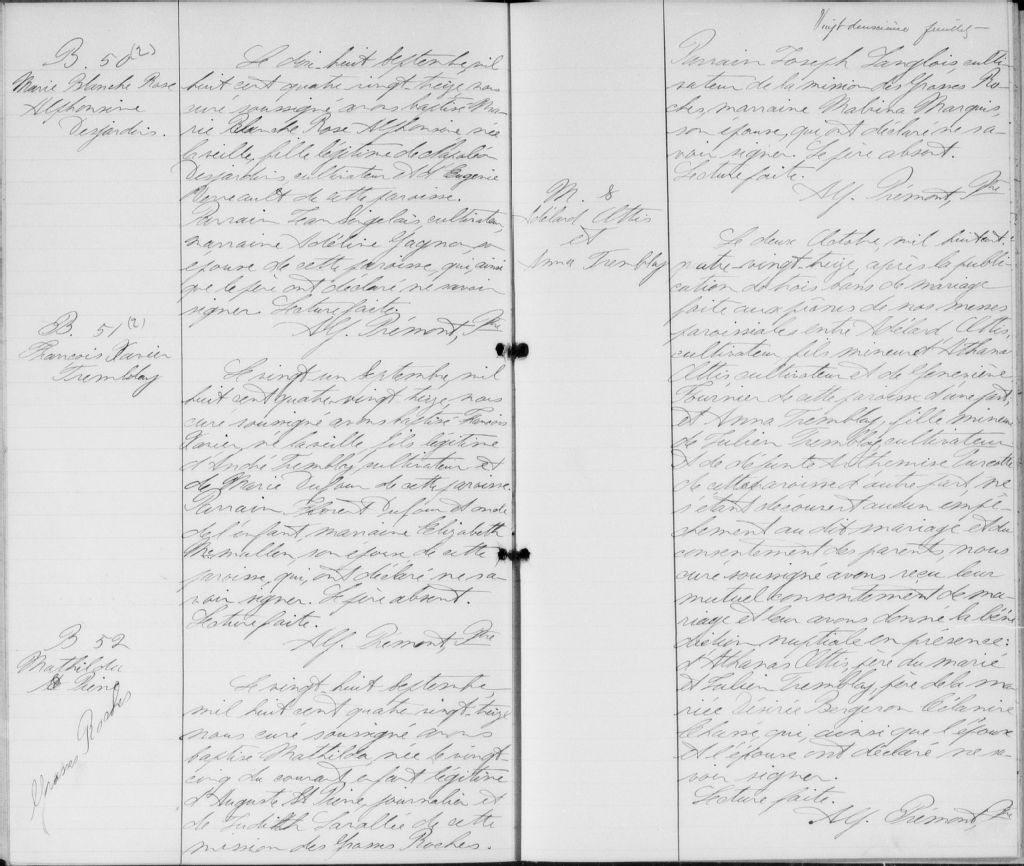 B. 50 (2)
Marie Blanche Rose
Alphonsine
Desjardins.
Le dix-huit Septembre, mil
huit cent quatre vingt treize nous
curé soussigné avons baptisé Ma-
rie Blanche Rose Alphonsine, née
la veille, fille légitime de Napoléon
Desjardins cultivateur et d'Eugenie
Verreault de cette paroisse.
Parrain Jean Sirgelais, cultivateur,
marraine Adéline Gagnon, son
épouse de cette paroisse, qui, ainsi
que le père ont déclaré ne savoir
signer. Lecture faite.
Alf. Prémont, Ptre
B. 51 (2)
François Xavier
Tremblay
Le vingt un Septembre, mil
huit cent quatre-vingt treize, nous
curé soussigné avons baptisé François
Xavier, né la veille, fils légitime
d'André Tremblay, cultivateur et
de Marie Dufour de cette paroisse.
Parrain Florent Dufour et oncle
de l'enfant, marraine Elizabeth
McMullen, son epouse de cette
paroisse, qui, ont déclaré ne sa-
voir signer. Le père absent.
Lecture faite.
Alf. Prémont, Ptre
B 52
Mathilda
St Pierre
Grosses Roches
Le vingt-huit Septembre,
mil huit cent quatre-vingt-treize
nous curé soussigné avons
baptisé Mathilda, née le vingt-
cinq du courant, enfant légitime
d'Auguste St Pierre journalier et
de Judith Lavallée de cette
mission des Grosses Roches.
Vingt deuxième feuillet
Parrain Joseph Langlois, culti-
vateur de la mission des Grosses Ro-
ches, marraine Malvina Marquis,
son épouse, qui ont déclaré ne sa-
voir signer. Le père absent.
Lecture faite.
Alf. Prémont, Ptre
M. 8
Adélard Ottis
et
Anna Tremblay
Le deux Octobre, mil huit cent
quatre-vingt-treize, après la publi-
cation de trois bans de mariage
faite aux prônes de nos messes
paroissiales entre Adélard Ottis,
cultivateur, fils mineur d'Athanas
Ottis, cultivateur et de Geneviève
Fournier de cette paroisse d'une part,
et Anna Tremblay, fille mineure
de Julien Tremblay, cultivateur
et de défunte Arthemise Turcotte
de cette paroisse d'autre part, ne
s'étant découvert aucun empê-
chement au dit mariage et du
consentement des parents, nous
curé soussigné avons reçu leur
mutuel consentement de ma-
riage et leur avons donné la béné
diction nuptiale en présence:
d'Athanas Ottis, père du marié
et Julien Tremblay, père de la ma-
riée Désiré Bergeron
qui, ainsi que l'époux
et l'épouse ont déclaré ne sa-
voir signer.
Lecture faite.
Alf. Prémont, Ptre